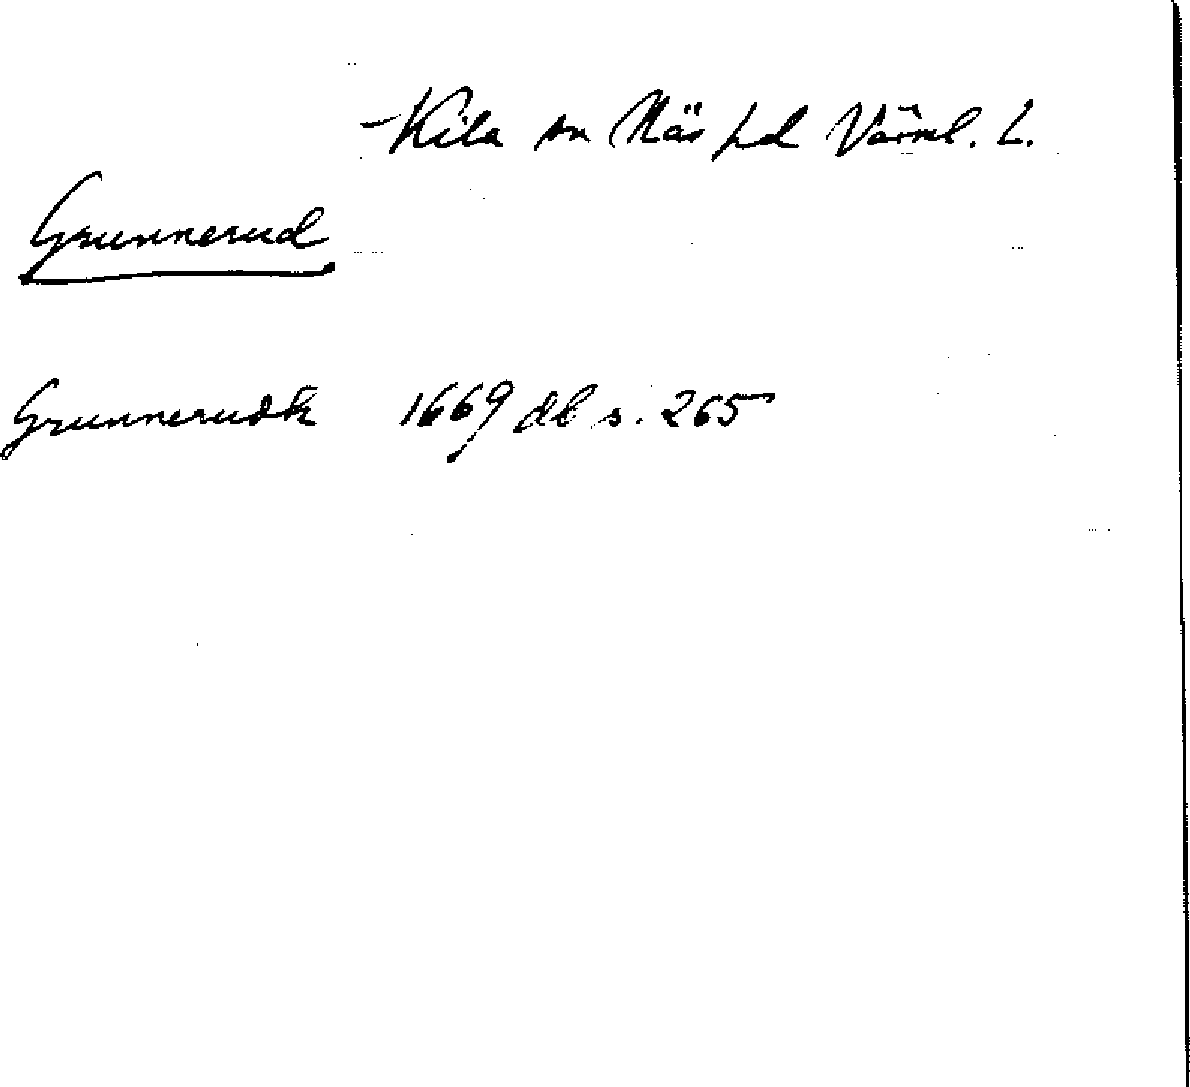 Kila sn Näs hd Värml. L.
Grunnerud
Grunnerudh 1669 db s. 265